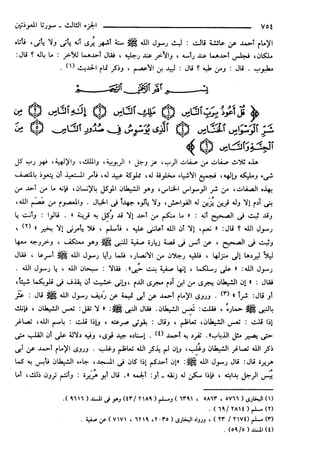 ٧٥٤ الجزء الثالث ـ سورتا المعوذتين
الإمام أحمد عن عائشة قالت : لبث رسول الله ﷺ ستة أشهر يُرى أنه يأتى ولا يأتى، فأتاه
ملكان، فجلس أحدهما عند رأسه ، والآخر عند رجليه ، فقال أحدهما للآخر : ما باله ؟ قال:
مطبوب . قال : ومن طبه ؟ قال : لبيد بن الأعصم ، وذكر تمام الحديث (١) .
بِسْمِ اللَّهِ الرَّحْمَٰنِ الرَّحِيمِ
﴿ قُلْ أَعُوذُ بِرَبِّ النَّاسِ ① مَلِكِ النَّاسِ ② إِلَٰهِ النَّاسِ ③
مِن شَرِّ الْوَسْوَاسِ الْخَنَّاسِ ④ الَّذِي يُوَسْوِسُ فِي صُدُورِ النَّاسِ ⑤
مِنَ الْجِنَّةِ وَالنَّاسِ ⑥ ﴾
هذه ثلاث صفات من صفات الرب، عز وجل ؛ الربوبية، والملك، والإلهية، فهو رب كل
شىء ومليكه وإلهه، فجميع الأشياء مخلوقة له، مملوكة عبيد له، فأمر المستعيذ أن يتعوذ بالمتصف
بهذه الصفات، من شر الوسواس الخناس، وهو الشيطان الموكل بالإنسان، فإنه ما من أحد من
بنى آدم إلا وله قرين يُزين له الفواحش، ولا يألوه جهداً فى الخبال . والمعصوم من عصَم الله،
وقد ثبت فى الصحيح أنه : « ما منكم من أحد إلا قد وُكل به قرينة » . قالوا : وأنت يا
رسول الله ؟ قال: « نعم، إلا أن الله أعاننى عليه ، فأسلم ، فلا يأمرنى إلا بخير » (٢) ،
وثبت فى الصحيح ، عن أنس فى قصة زيارة صفية للنبى ﷺ وهو معتكف ، وخروجه معها
ليلاً ليردها إلى منزلها ، فلقيه رجلان من الأنصار، فلما رأيا رسول الله ﷺ أسرعا ، فقال
رسول الله: «على رسلكما ، إنها صفية بنت حُيى». فقالا: سبحان الله ، يا رسول الله .
فقال : « إن الشيطان يجرى من ابن آدم مجرى الدم ، وإنى خشيت أن يقذف فى قلوبكما شيئاً،
أو قال: شراً » (٣) . وروى الإمام أحمد عن أبى تميمة عن رَديف رسول الله ﷺ قال : عَثَر
بالنبى ﷺ حماره ، فقلت: تَعِس الشيطان. فقال النبى ﷺ : « لا تقل: تعس الشيطان ، فإنك
إذا قلت : تعس الشيطان، تعاظم ، وقال : بقوتى صرعته ، وإذا قلت : باسم الله، تصاغر
حتى يصير مثل الذباب». تفرد به أحمد (٤) . إسناده جيد قوى، وفيه دلالة على أن القلب متى
ذكر الله تصاغر الشيطان وغُلب، وإن لم يذكر الله تعاظم وغلب . وروى الإمام أحمد عن أبى
هريرة قال: قال رسول الله ﷺ : «إن أحدكم إذا كان فى المسجد، جاءه الشيطان فأبس به كما
يُبَس الرجل بدابته ، فإذا سكن له زنقه ـ أو: ألجمه ». قال أبو هُرَيرة : وأنتم ترون ذلك، أما
(١) البخارى (٥٧٦٦ ، ٥٨٦٣ ، ٦٣٩١) ومسلم (٢١٨٩/ ٤٣) وهو فى المسند (٩٦١٦) .
(٢) مسلم (٢٨١٤/ ٦٩) .
(٣) مسلم (٢١٧٤/ ٢٣) ، ورواه البخارى (٢٠٣٥، ٦٢١٩ ، ٧١٧١) عن صفية .
(٤) المسند (٥٩/٥)